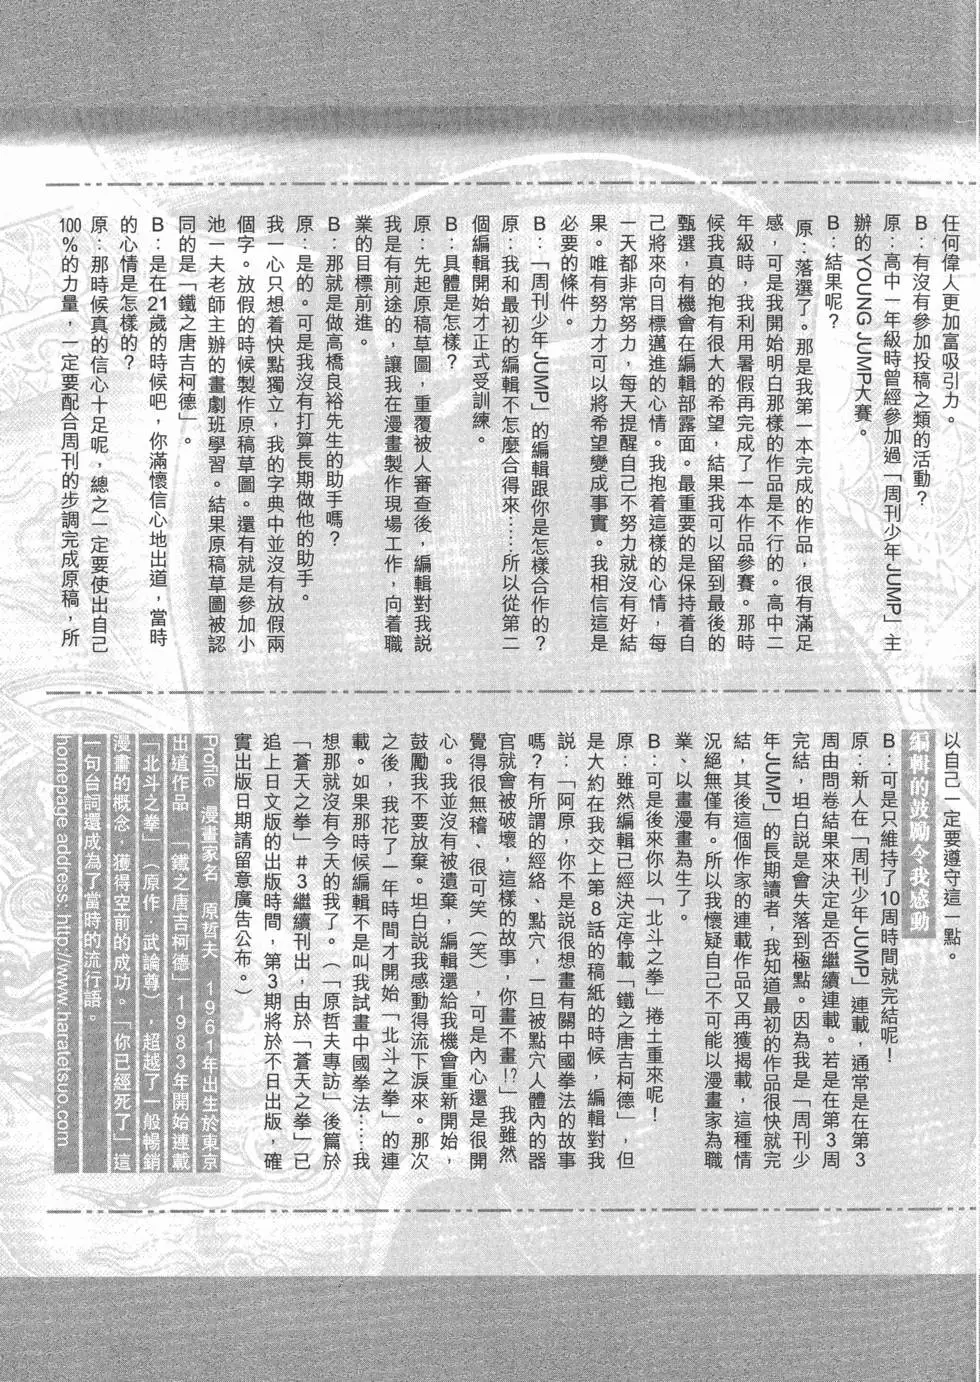 任何偉人更加富吸引力。
B：有沒有參加投稿之類的活動？
原：高中一年級時曾經參加過「周刊少年JUMP」主
辦的YOUNG JUMP大賽。
B：結果呢？
原：落選了。那是我第一本完成的作品，很有滿足
感，可是我開始明白那樣的作品是不行的。高中二
年級時，我利用暑假再完成了一本作品參賽。那時
候我真的抱有很大的希望，結果我可以留到最後的
甄選，有機會在編輯部露面。最重要的是保持着自
己將來向目標邁進的心情。我抱着這樣的心情，每
一天都非常努力，每天提醒自己不努力就沒有好結
果。唯有努力才可以將希望變成事實。我相信這是
必要的條件。
B：「周刊少年JUMP」的編輯跟你是怎樣合作的？
原：我和最初的編輯不怎麼合得來……所以從第二
個編輯開始才正式受訓練。
B：具體是怎樣？
原：先起原稿草圖，重覆被人審查後，編輯對我說
我是有前途的，讓我在漫畫製作現場工作，向着職
業的目標前進。
B：那就是做高橋良裕先生的助手嗎？
原：是的。可是我沒有打算長期做他的助手。
我一心只想着快點獨立，我的字典中並沒有放假兩
個字。放假的時候製作原稿草圖。還有就是參加小
池一夫老師主辦的畫劇班學習。結果原稿草圖被認
同的是「鐵之唐吉柯德」。
B：是在21歲的時候吧，你滿懷信心地出道，當時
的心情是怎樣的？
原：那時候真的信心十足呢，總之一定要使出自己
100%的力量，一定要配合周刊的步調完成原稿，所
以自己一定要遵守這一點。
編輯的鼓勵令我感動
B：可是只維持了10周時間就完結呢！
原：新人在「周刊少年JUMP」連載，通常是在第3
周由問卷結果來決定是否繼續連載。若是在第3周
完結，坦白說是會失落到極點。因為我是「周刊少
年JUMP」的長期讀者，我知道最初的作品很快就完
結，其後這個作家的連載作品又再獲揭載，這種情
況絕無僅有。所以我懷疑自己不可能以漫畫家為職
業、以畫漫畫為生了。
B：可是後來你以「北斗之拳」捲土重來呢！
原：雖然編輯已經決定停載「鐵之唐吉柯德」，但
是大約在我交上第8話的稿紙的時候，編輯對我
說：「阿原，你不是說很想畫有關中國拳法的故事
嗎？有所謂的經絡、點穴，一旦被點穴人體內的器
官就會被破壞，這樣的故事，你畫不畫!?」我雖然
覺得很無稽、很可笑（笑），可是內心還是很開
心。我並沒有被遺棄，編輯還給我機會重新開始，
鼓勵我不要放棄。坦白說我感動得流下淚來。那次
之後，我花了一年時間才開始「北斗之拳」的連
載。如果那時候編輯不是叫我試畫中國拳法……我
想那就沒有今天的我了。（「原哲夫專訪」後篇於
「蒼天之拳」＃3繼續刊出，由於「蒼天之拳」已
追上日文版的出版時間，第3期將於不日出版，確
實出版日期請留意廣告公布。）
Profile　漫畫家名　原哲夫　1961年出生於東京
出道作品　「鐵之唐吉柯德」1983年開始連載
「北斗之拳」（原作．武論尊），超越了一般暢銷
漫畫的概念，獲得空前的成功。「你已經死了」這
一句台詞還成為了當時的流行語。
homepage address: http://www.haratetsuo.com